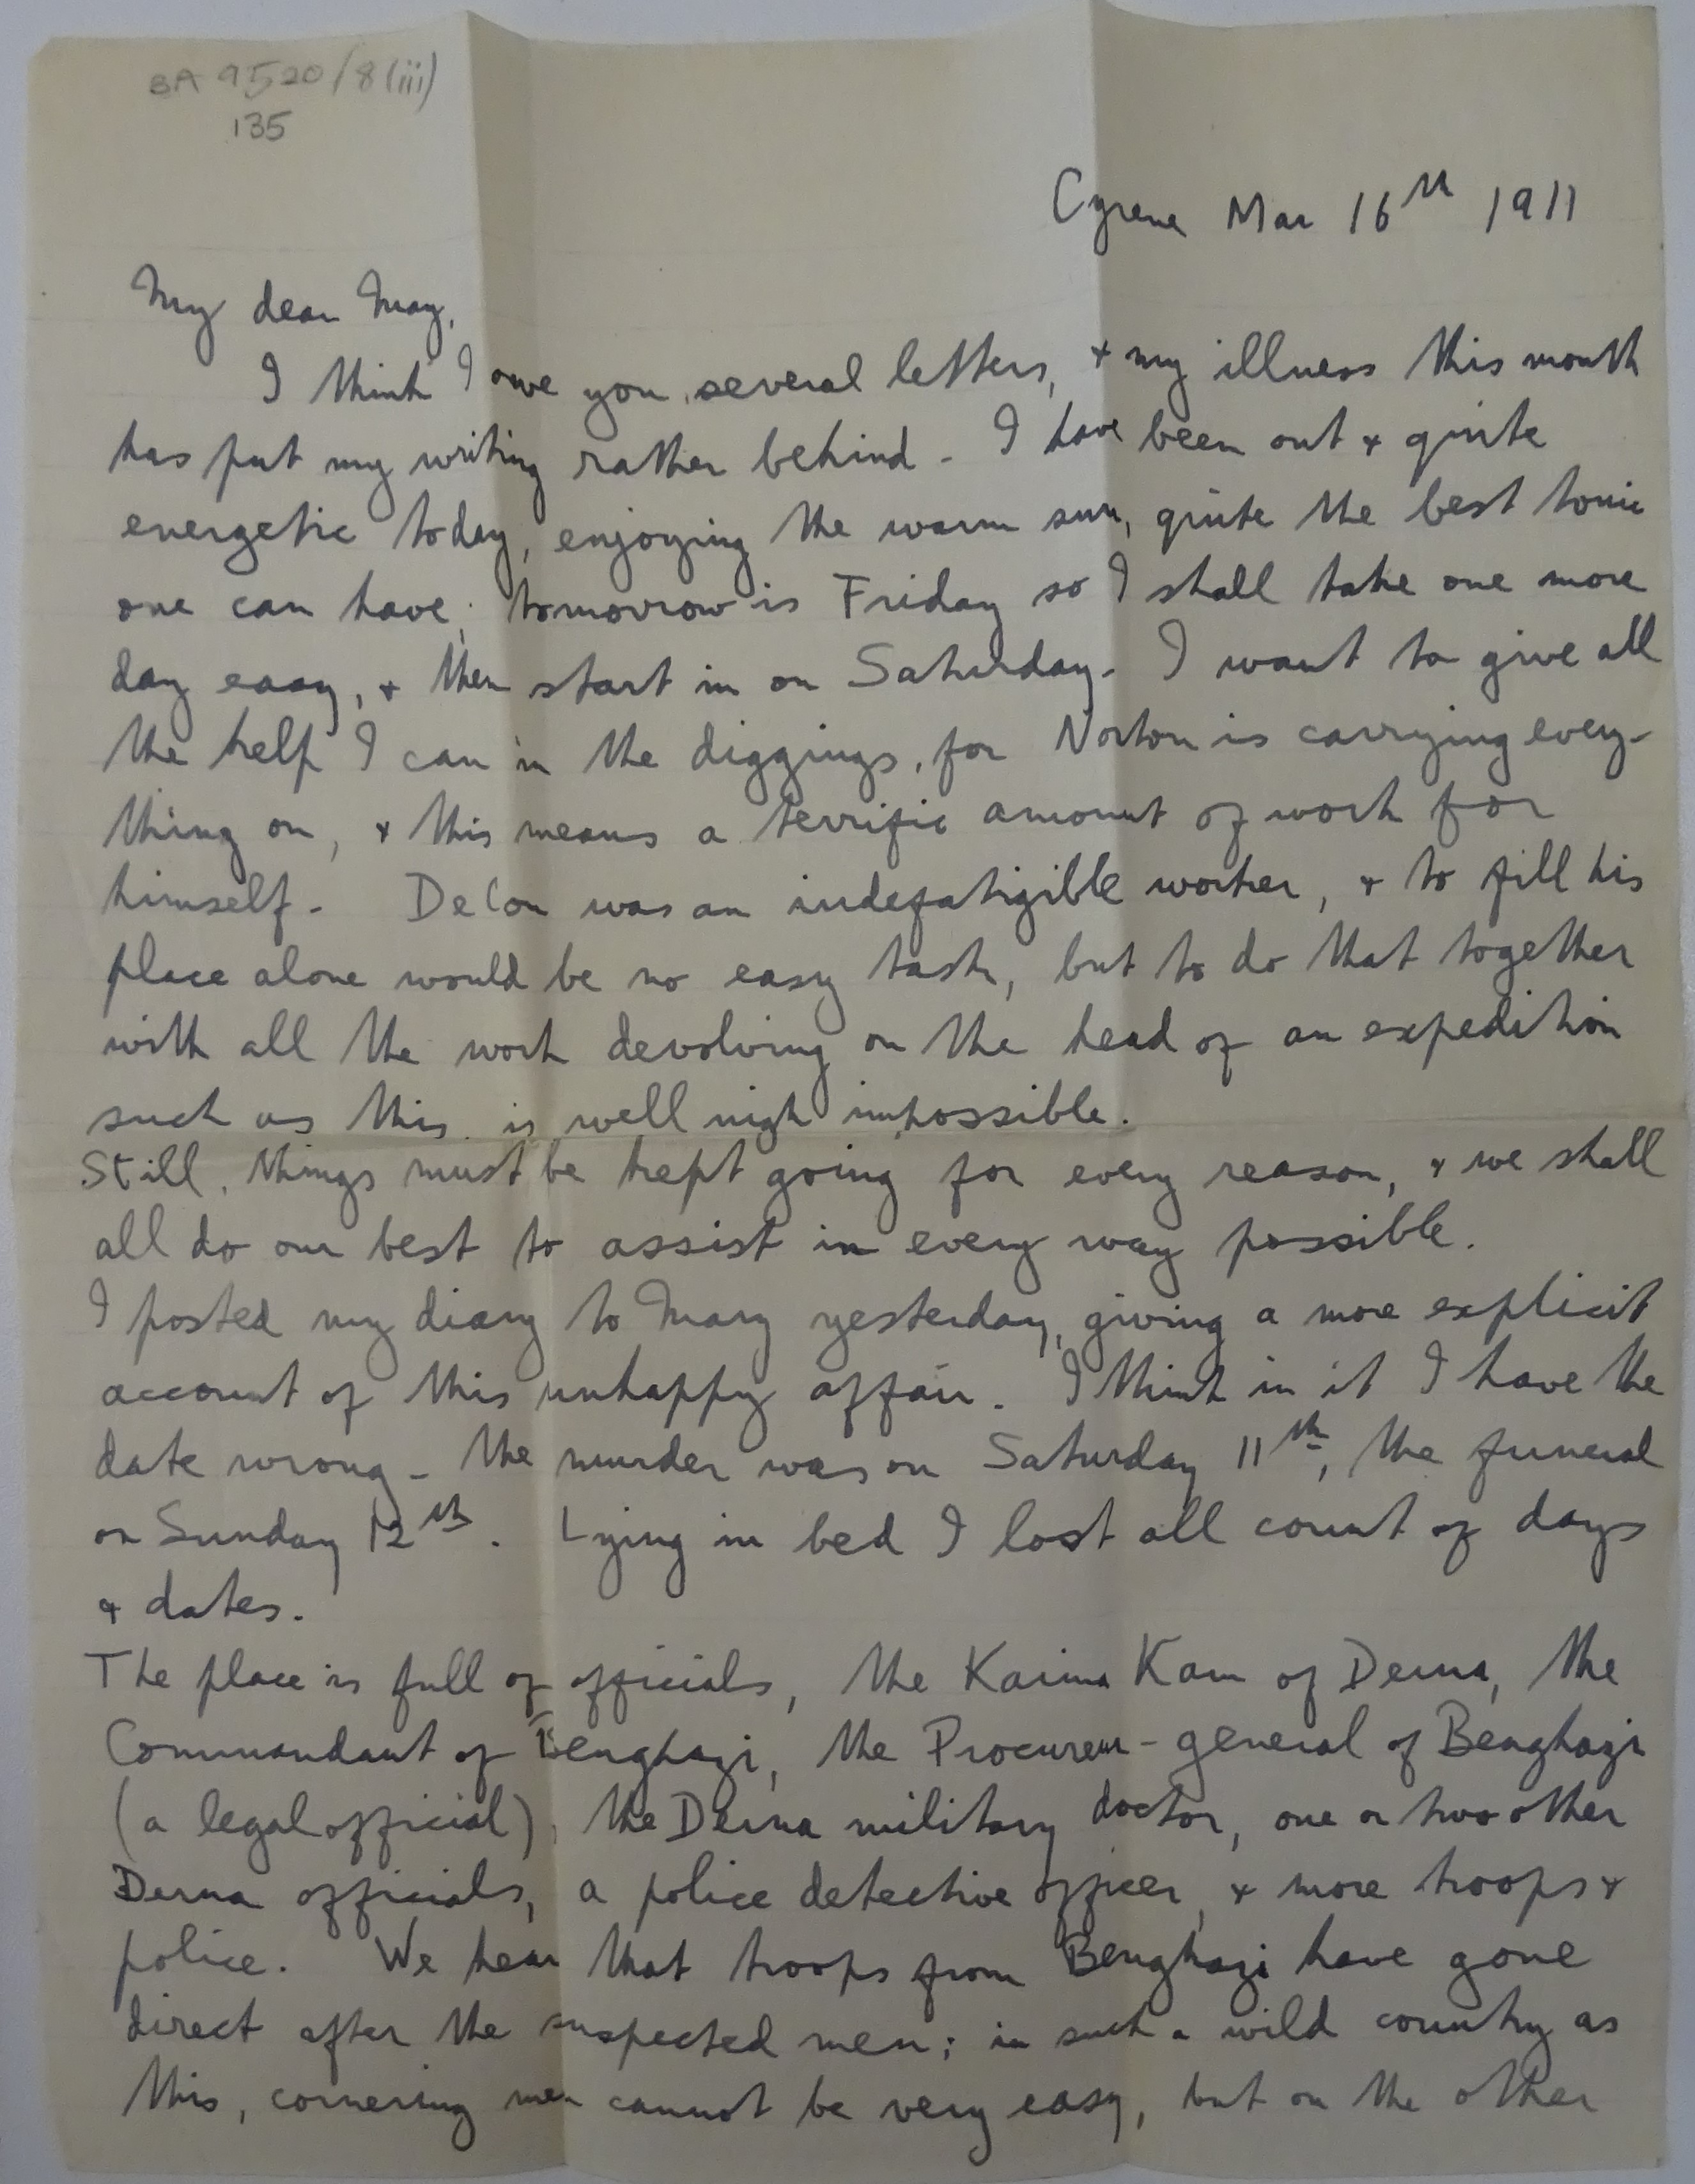 BA 9520/8(iii)
135
Cyrene Mar 16th 1911
My dear May,
I think I owe you several letters, + my illness this month
has put my writing rather behind - I have been out + quite
energetic today, enjoying the warm sun, quite the best tonic
one can have; tomorrow is Friday so I shall take one more
day easy, + then start in on Saturday. I want to give all
the help I can in the diggings, for Norton is carrying every-
thing on, + this means a terrific amount of work for
himself. DeCou was an indefatigible worker, + to fill his
place alone would be no easy task, but to do that together
with all the work devolving on the head of an expedition
such as this is well nigh impossible.
Still, things must be kept going for every reason, + we shall
all do our best to assist in every way possible.
I posted my diary to Mary yesterday, giving a more explicit
account of this unhappy affair. I think in it I have the
date wrong - the murder was on Saturday 11th, the funeral
on Sunday 12th. Lying in bed I lost all count of days
+ dates.
The place is full of officials, the Kaima Kam of Derna, the
Commandant of Benghazi, the Procureur-general of Benghazi
(a legal official), the Derna military doctor, one or two other
Derna officials, a police detective officer, + more troops +
police. We hear that troops from Benghazi have gone
direct after the suspected men; in such a wild country as
this, cornering men cannot be very easy, but on the other